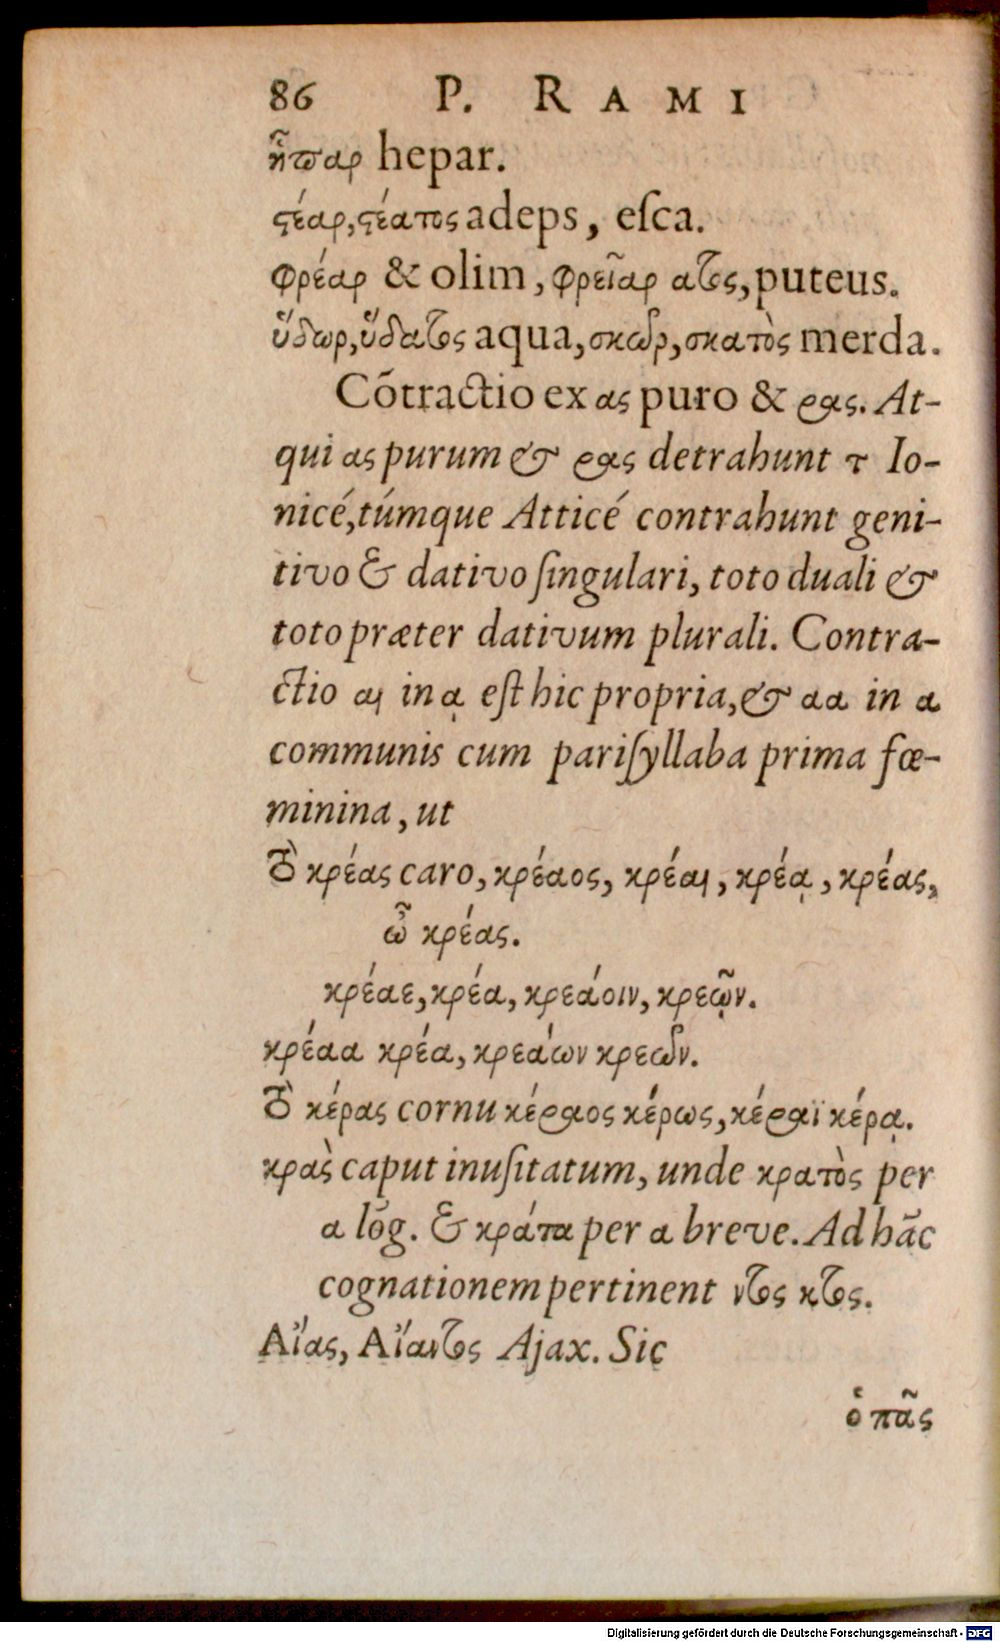 86 P. RAMI
ἧπαρ hepar.
ϛέαρ, ϛέατος adeps, eſca.
φρέαρ & olim, φρεῖαρ ατος, puteus.
ὕδωρ, ὕδατος aqua, σκῶρ, σκατὸς merda.
Cõtractio ex ας puro & ρας. At-
qui ας purum & ρας detrahunt τ Io-
nicé, túmque Atticé contrahunt geni-
tivo & dativo ſingulari, toto duali &
toto præter dativum plurali. Contra-
ctio αι in ᾳ eſt hic propria, & αα in α
communis cum pariſyllaba prima fœ-
minina, ut
τὸ κρέας caro, κρέαος, κρέαι, κρέᾳ, κρέας,
ὦ κρέας.
κρέαε, κρέα, κρεάοιν, κρεῷν.
κρέαα κρέα, κρεάων κρεῶν.
τὸ κέρας cornu κέραος κέρως, κέραϊ κέρᾳ.
κρὰς caput inuſitatum, unde κρατὸς per
α lõg. & κράτα per α breve. Ad hãc
cognationem pertinent ντος κτος.
Αἴας, Αἴαντος Ajax. Sic
ὁ πᾶς
Digitalisierung gefördert durch die Deutsche Forschungsgemeinschaft - DFG